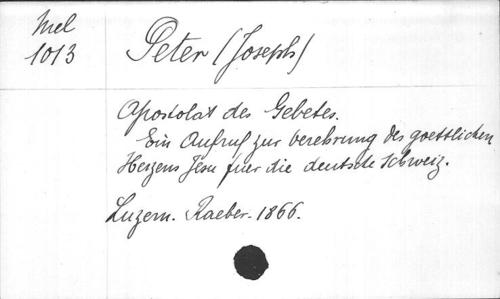 Mel
1013
Peter (Joseph)
Apostolat des Gebetes.
Ein Aufruf zur Verehrung des goettlichen
Herzens Jesu fuer die deutsche Schweiz.
Luzern. Raeber. 1866.